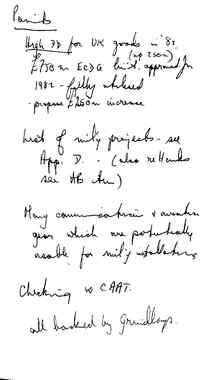 Points
High for UK goods in '82
£750m ECGD limit approved for
1982 - fully utilised
- propose £250m increase
List of mil'y projects - see
App. D. (also
see
Many communications & aviation
gear which are potentially
usable for mil'y
Checking w CAAT.
all backed by Grindlays.